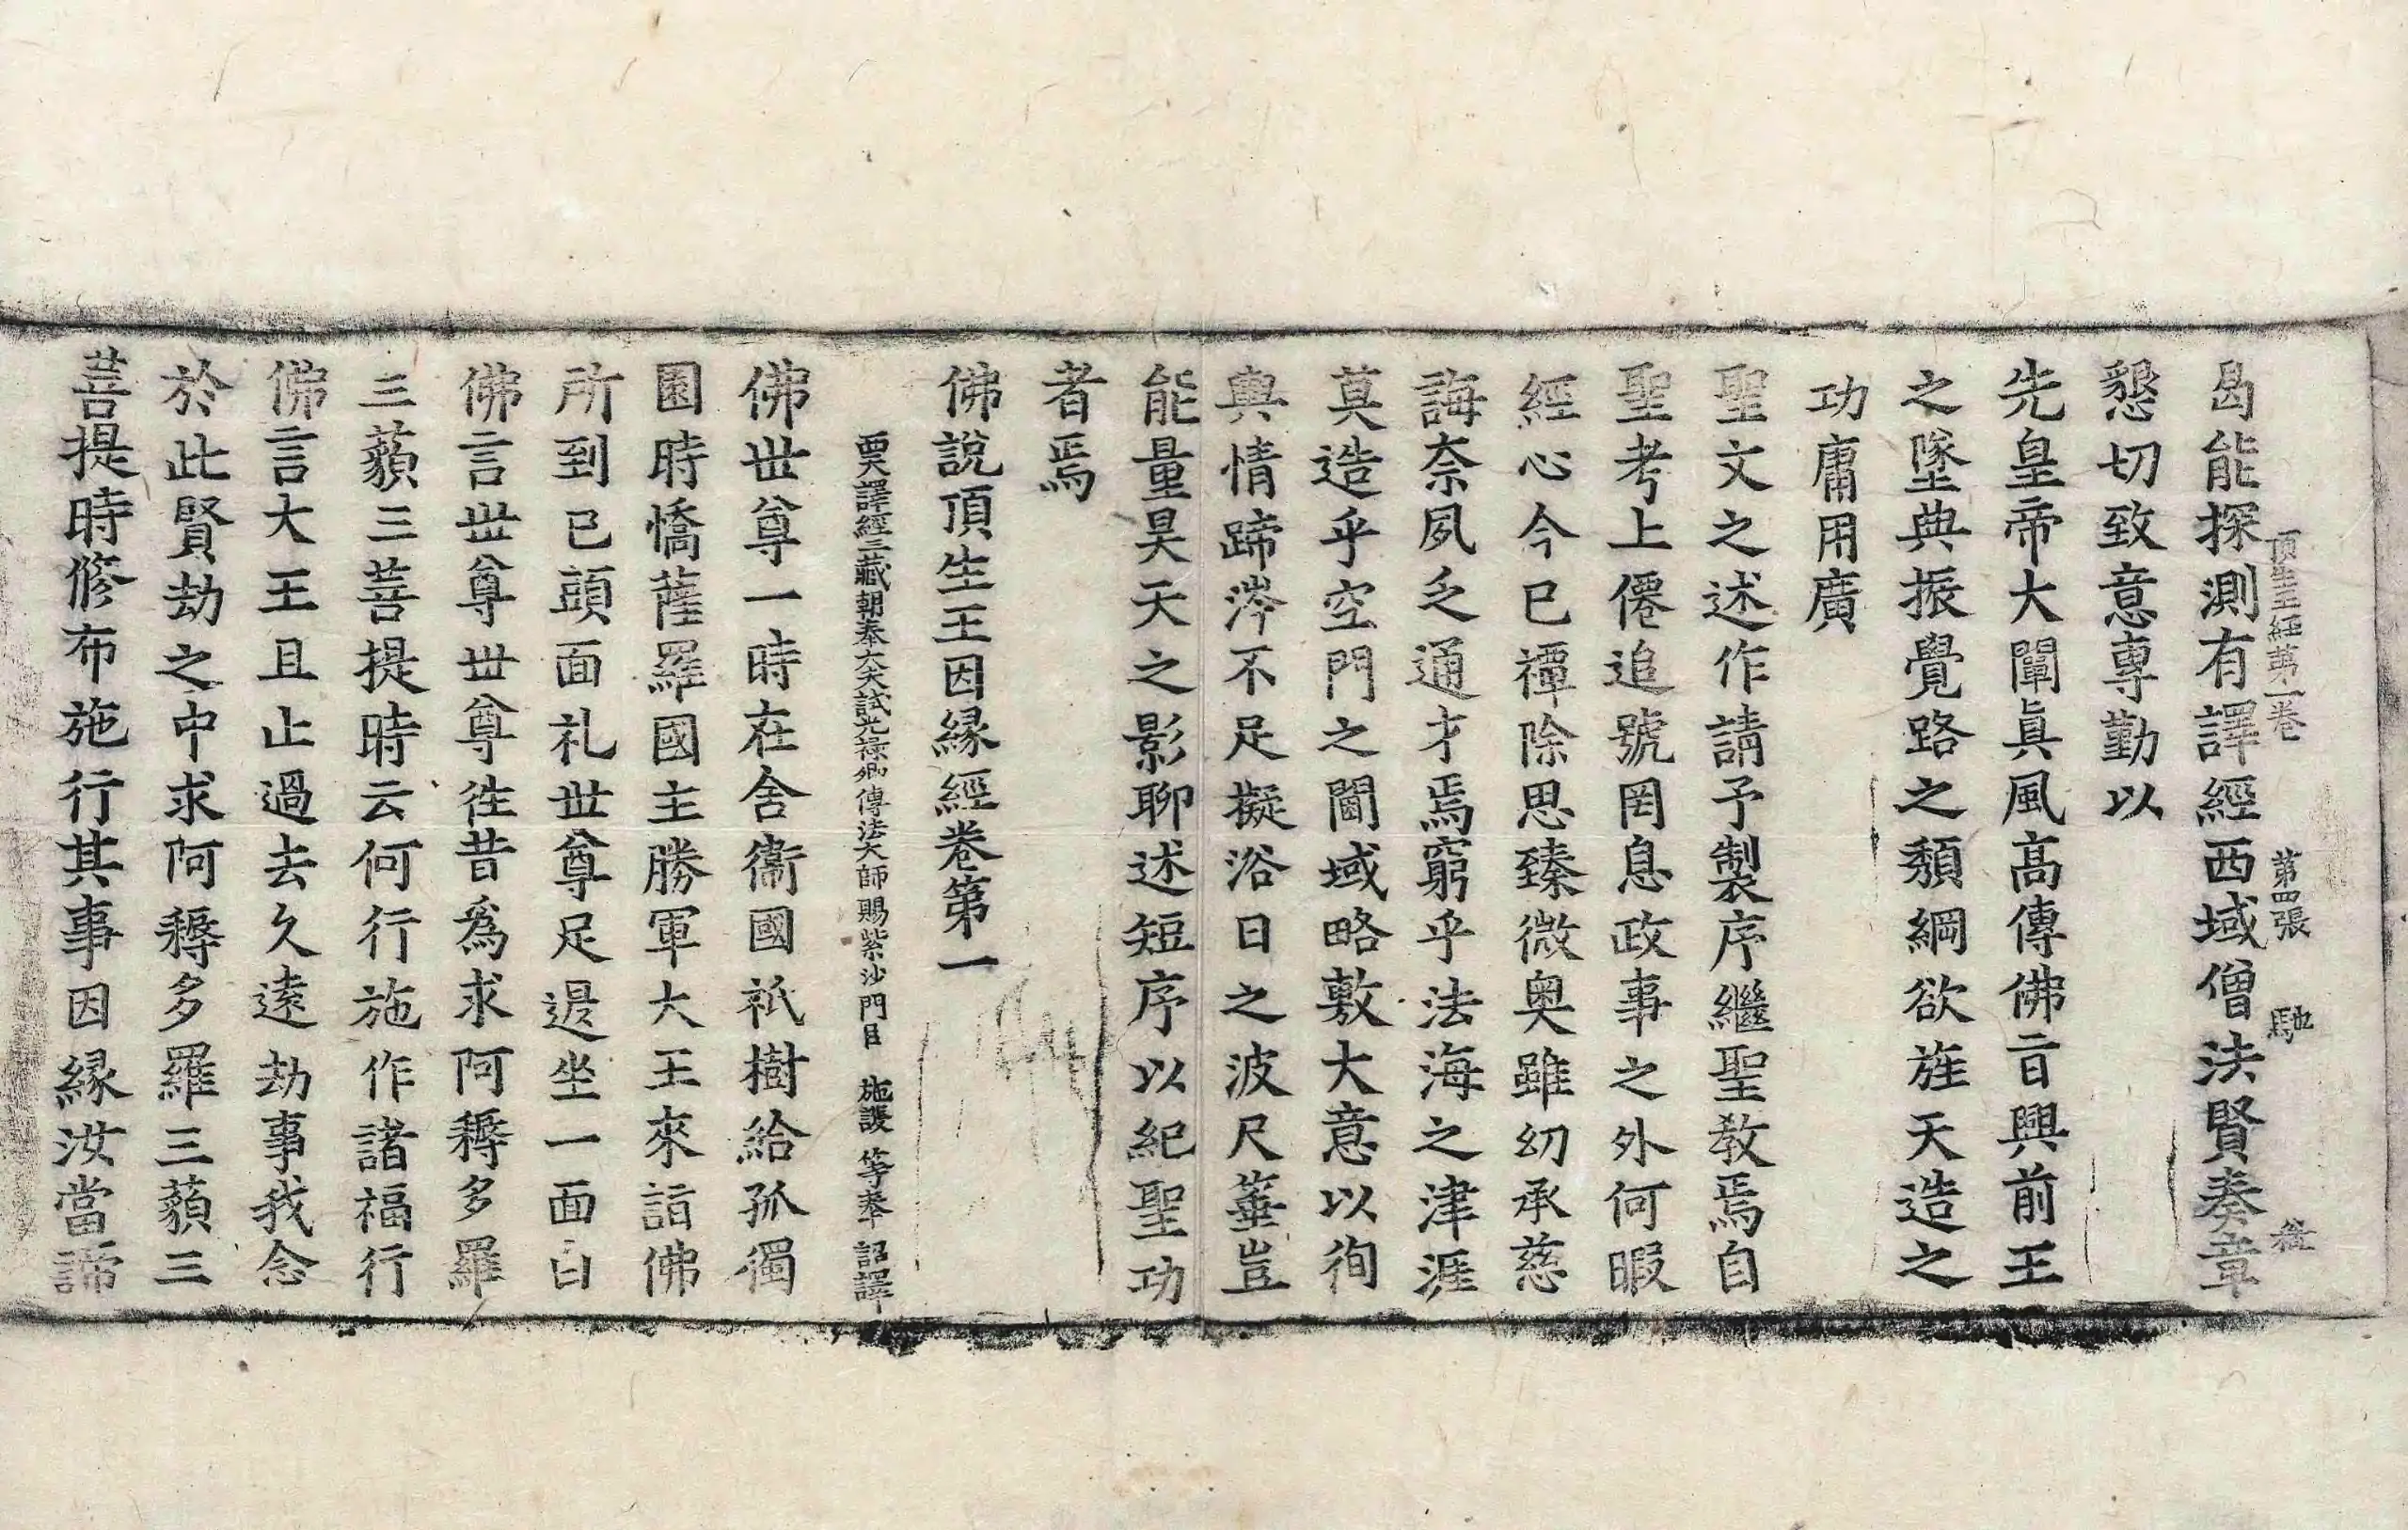 頂生王經第一卷 第四張 馳
曷能探測有譯經西域僧法賢奏章
懇切致意專勤以
先皇帝大闡眞風高傳佛旨興前王
之墜典振覺路之頹綱欲旌天造之
功庸用廣
聖文之述作請予製序繼聖教焉自
聖考上僊追號罔息政事之外何暇
經心今已禫除思臻微奥雖幼承慈
誨奈夙乏通才焉窮乎法海之津涯
莫造乎空門之閫域略敷大意以徇
輿情蹄涔不足擬浴日之波尺箠豈
能量昊天之影聊述短序以紀聖功
者焉
佛說頂生王因緣經卷第一
西天譯經三藏朝奉大夫試光祿卿傳法大師賜紫沙門臣 施護 等奉 詔譯
佛世尊一時在舍衞國祇樹給孤獨
園時憍薩羅國主勝軍大王來詣佛
所到已頭面礼世尊足退坐一面白
佛言世尊世尊往昔爲求阿耨多羅
三藐三菩提時云何行施作諸福行
佛言大王且止過去久遠劫事我念
於此賢劫之中求阿耨多羅三藐三
菩提時修布施行其事因緣汝當諦